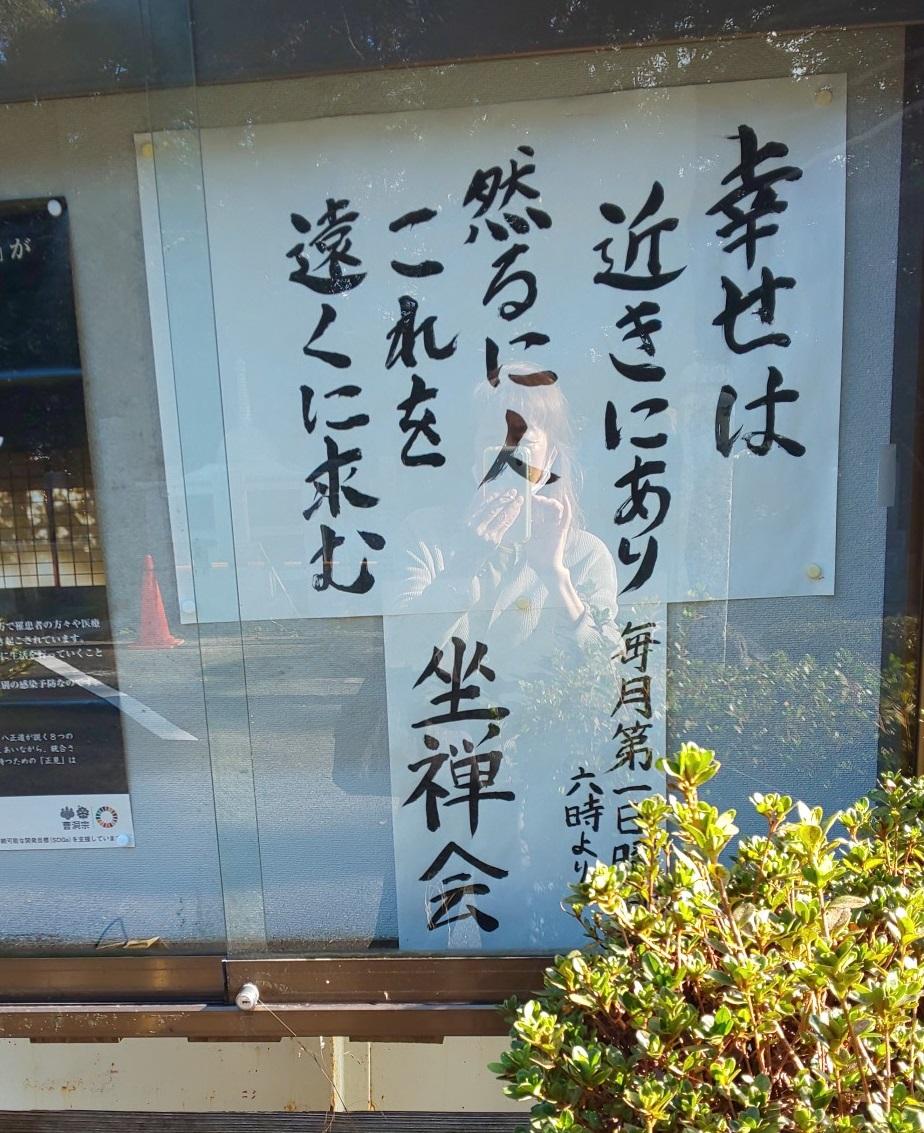 幸せは
近きにあり
然るに人
これを
遠くに求む
毎月第一日曜
六時より
坐禅会
が
方で罹患者の方々や医療
き起こされています。
に生活を行っていくこと
別の感染予防なのです。
八正道が説く8つの
あいながら、統合さ
持つための「正見」は
曹洞宗
続可能な開発目標(SDGs)を支援していま